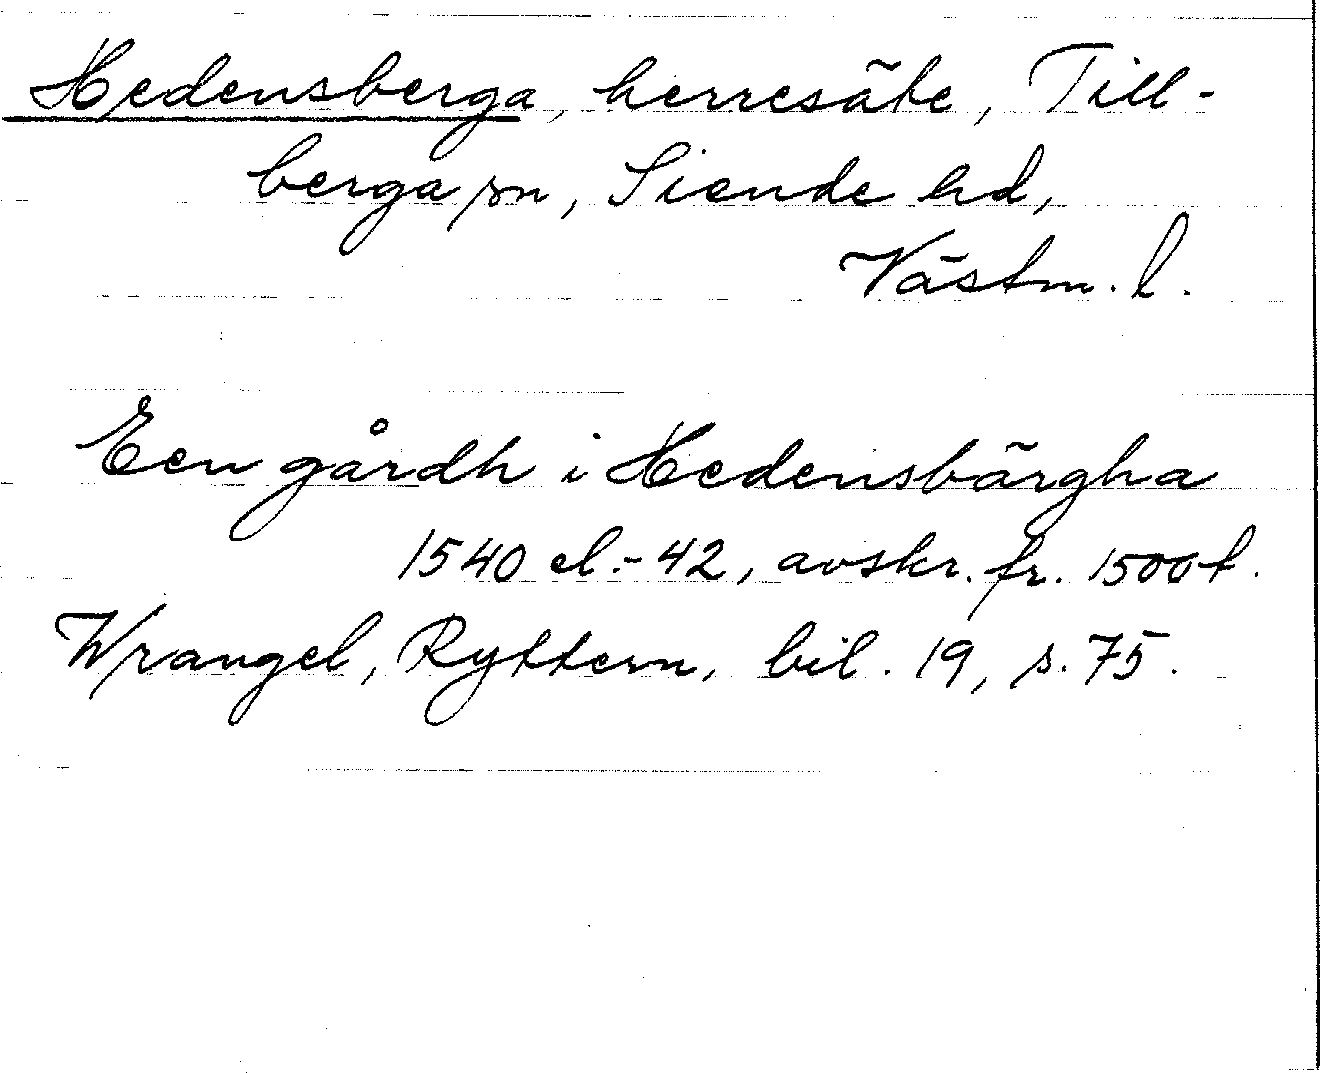 Hedensberga, herresäte, Till-
berga sn, Siende hd,
Västm. l.
Een gårdh i Hedensbärgha
1540 el.-42, avskr. fr. 1500t.
Wrangel, Ryttern, bil. 19, s. 75.